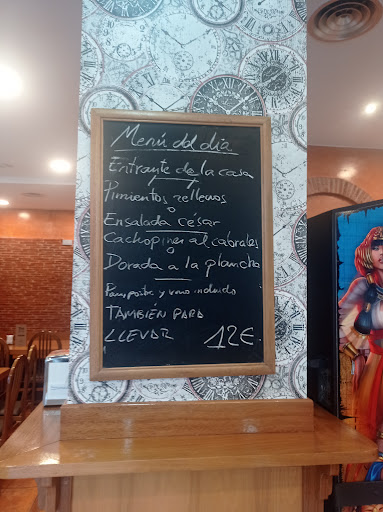 Menú del dia
Entrante de la casa
y
Pimientos rellenos
o
Ensalada cesar
Cachopines al cabrales
o
Dorada a la plancha
Pan, postre y vino incluido
TAMBIÉN PARA
LLEVAR 12€